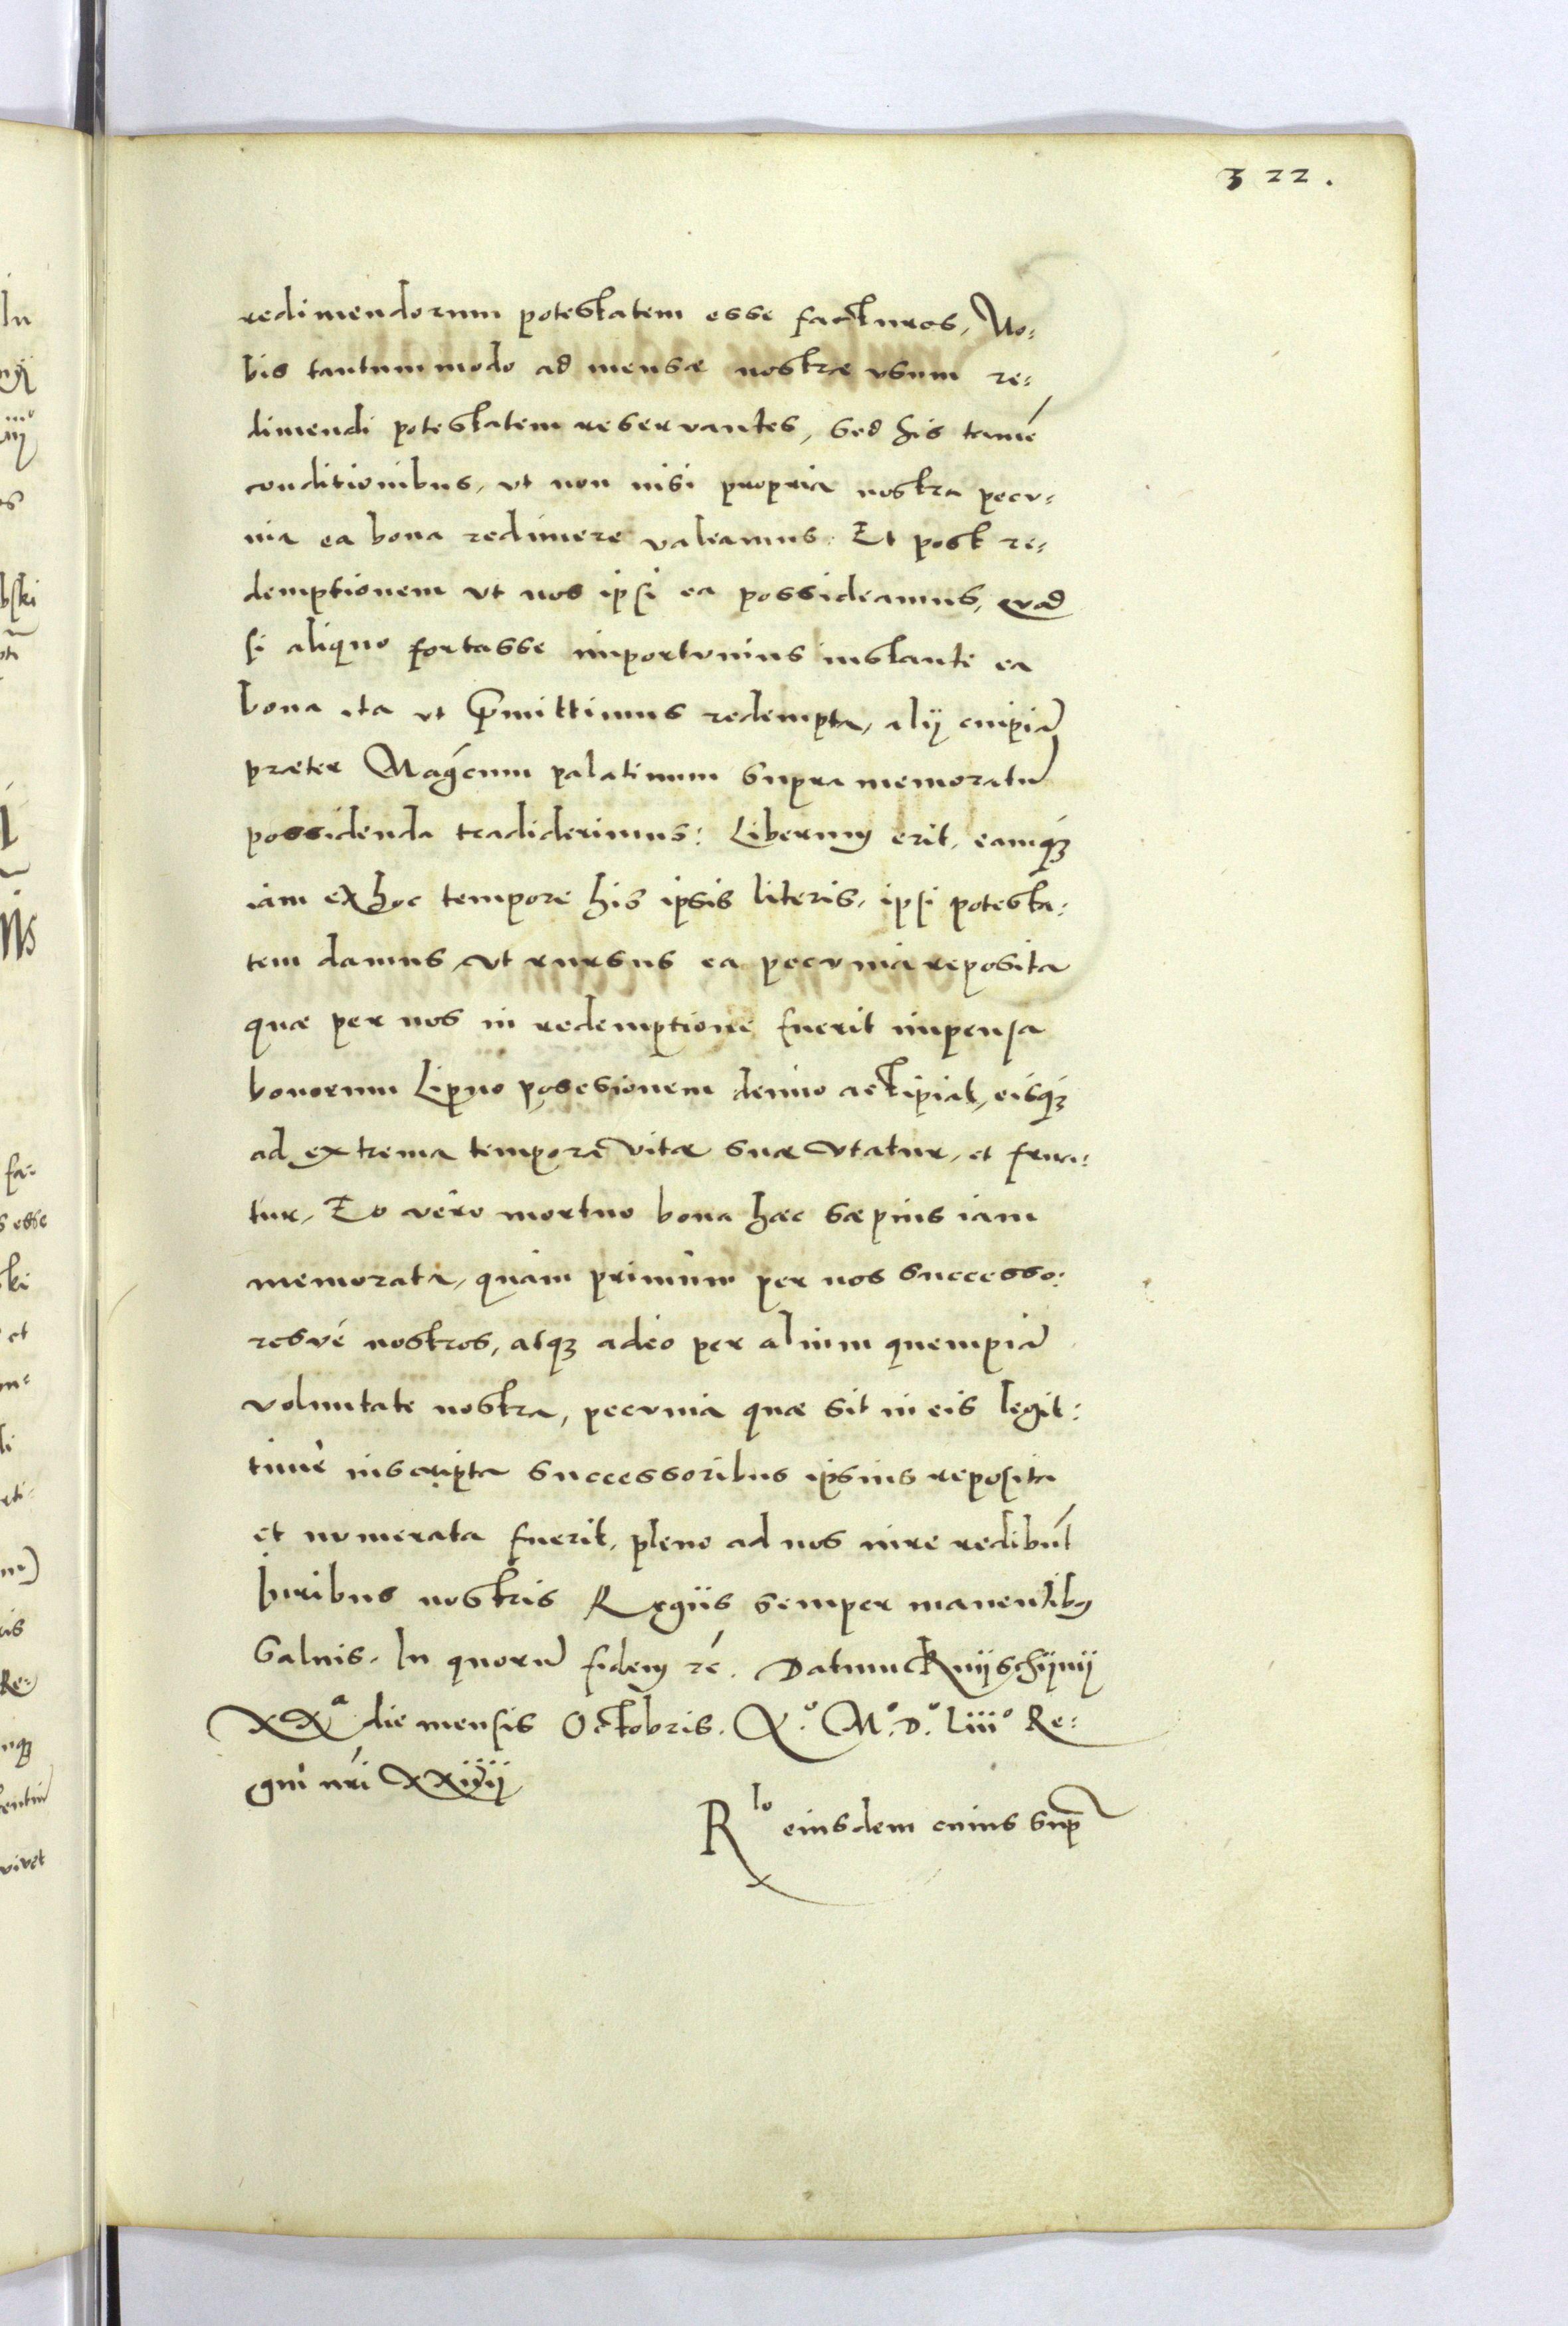 322.
redimendorum potestatem esse facturos, No:
bis tantummodo ad mensæ nostræ vsum re:
dimendi potestatem reservantes, sed his tamē
conditionibus, vt non nisi propria nostra pecu:
nia ea bona redimere valeamus: Et post re:
demptionem vt nos ipsi ea possideamus, quod
si aliquo fortasse importunius instante ea
bona ita vt p̄mittimus redempta, alij cuipiā
præter Mag̃cum palatinum supra memoratū
possidenda tradiderimus: Liberum erit, eamq́ꝫ
iam ex hoc tempore his ipsis literis, ipsi potesta:
tem damus, vt rursus ea pecunia reposita
quæ per nos in redemptione fuerit impensa
bonorum Lipno posesionem denuo accipiat, eisq́ꝫ
ad extrema tempora vitæ suæ vtatur, et frua:
tur, Eo vero mortuo bona hæc sæpius iam
memorata, quàm primùm per nos successo:
resvé nostros, atqꝫ adeo per alium quempiā
voluntate nostra, pecunia quæ sit in eis legit:
timè inscripta successoribus ipsius reposita
et numerata fuerit, pleno ad nos iure redibūt
Iuribus nostris Regiis semper manentibꝰ
Saluis. In quorū fidem rć. Datum Knijschijnij
XXª die mensis Octobris. Aº. Mº. D.º Liiiº Re:
gni nr̄i XXiiij
Rlo eiusdem cuius sup̄